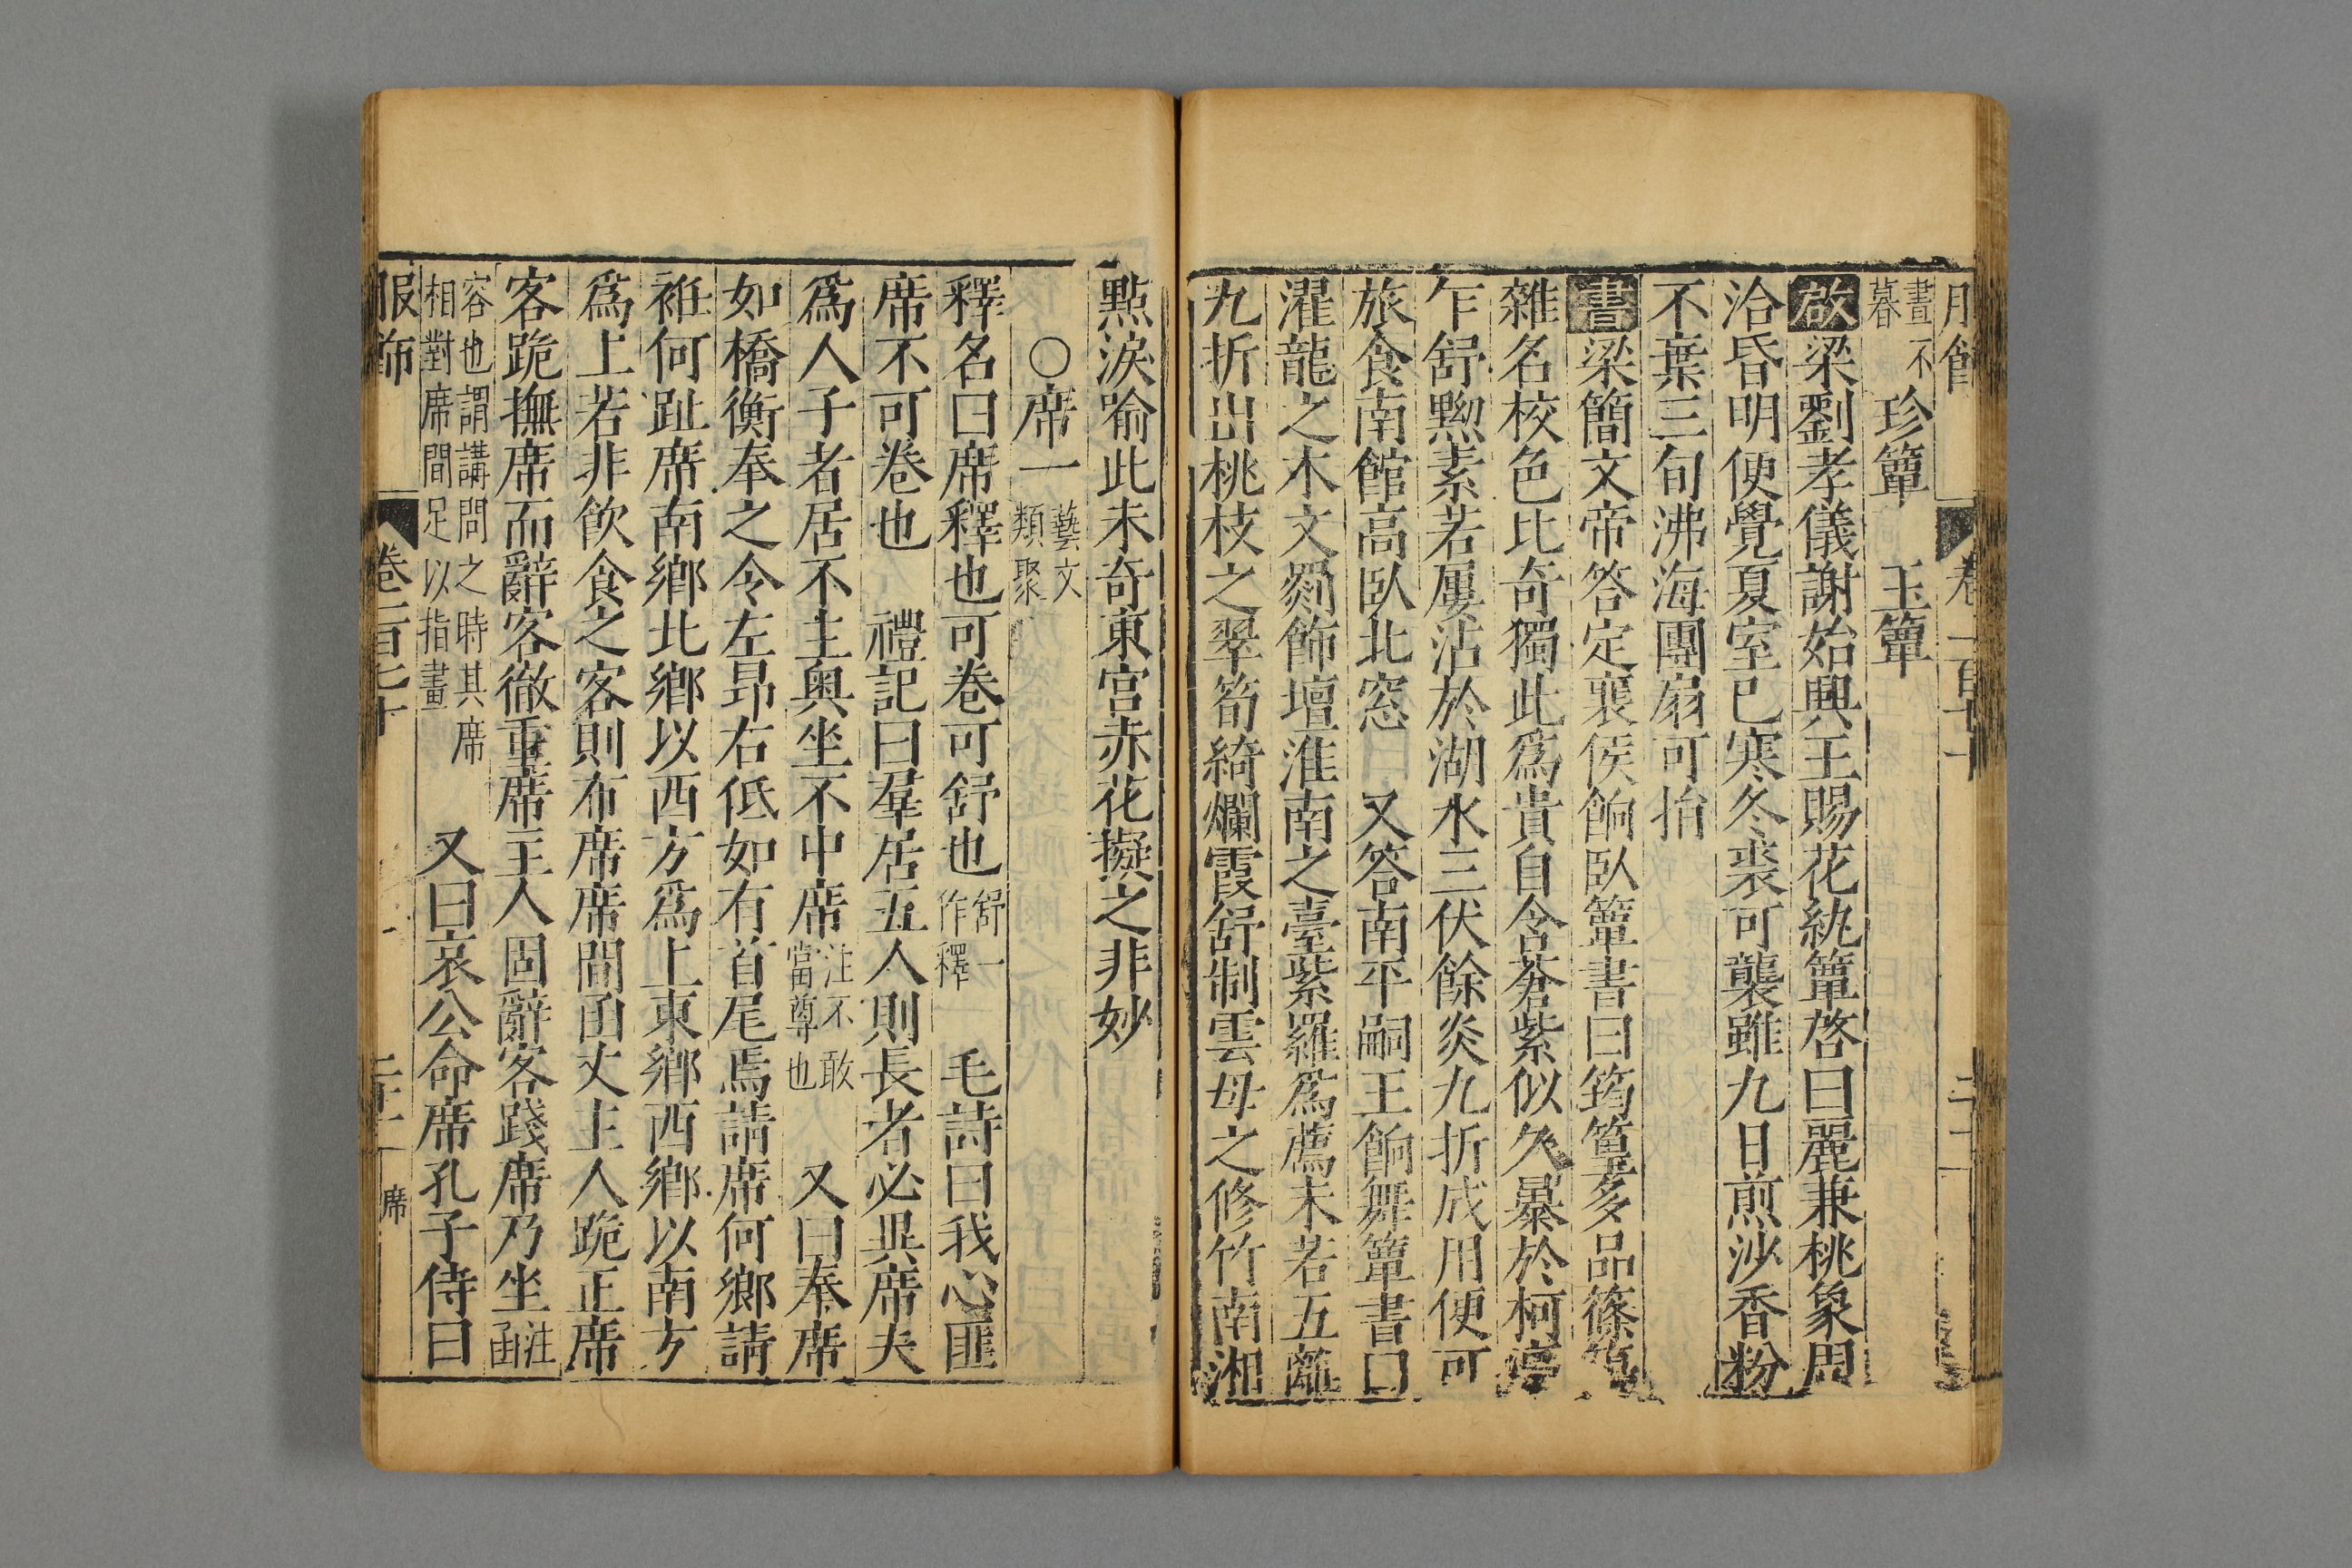 晝不暮　珍簟　玉簟
啟梁劉孝儀謝始興王賜花紈簟啓曰麗兼桃象周
洽昏明便覺夏室已寒冬裘可襲雖九日煎沙香粉
不棄三旬沸海團扇可捐
書梁簡文帝答定襄侯餉臥簟書曰筠篁多品篠
雜名校色比奇獨此爲貴自含蒼紫似久暴於柯亭
乍舒黝素若屢沾於湖水三伏餘炎九折成用便可
旅食南館高臥北窓　又答南平嗣王餉舞簟書曰
濯龍之木文剹飾壇淮南之臺紫羅爲薦未若五離
九折出桃枝之翠筍綺爛霞舒制雲母之修竹南湘
點淚喻此未奇東宮赤花擬之非妙
○席一藝文類聚
釋名曰席釋也可卷可舒也舒一作釋　毛詩曰我心匪
席不可卷也　禮記曰羣居五人則長者必異席夫
爲人子者居不主奥坐不中席注不敢當尊也　又曰奉席
如橋衡奉之令左昂右低如有首尾焉請席何鄉請
袵何趾席南鄉北鄉以西方爲上東鄉西鄉以南方
爲上若非飲食之客則布席席間函丈主人跪正席
客跪撫席而辭客徹重席主人固辭客踐席乃坐注函
容也謂講問之時其席相對席間足以指畫　又曰哀公命席孔子侍曰
服飾　卷二百七十　席